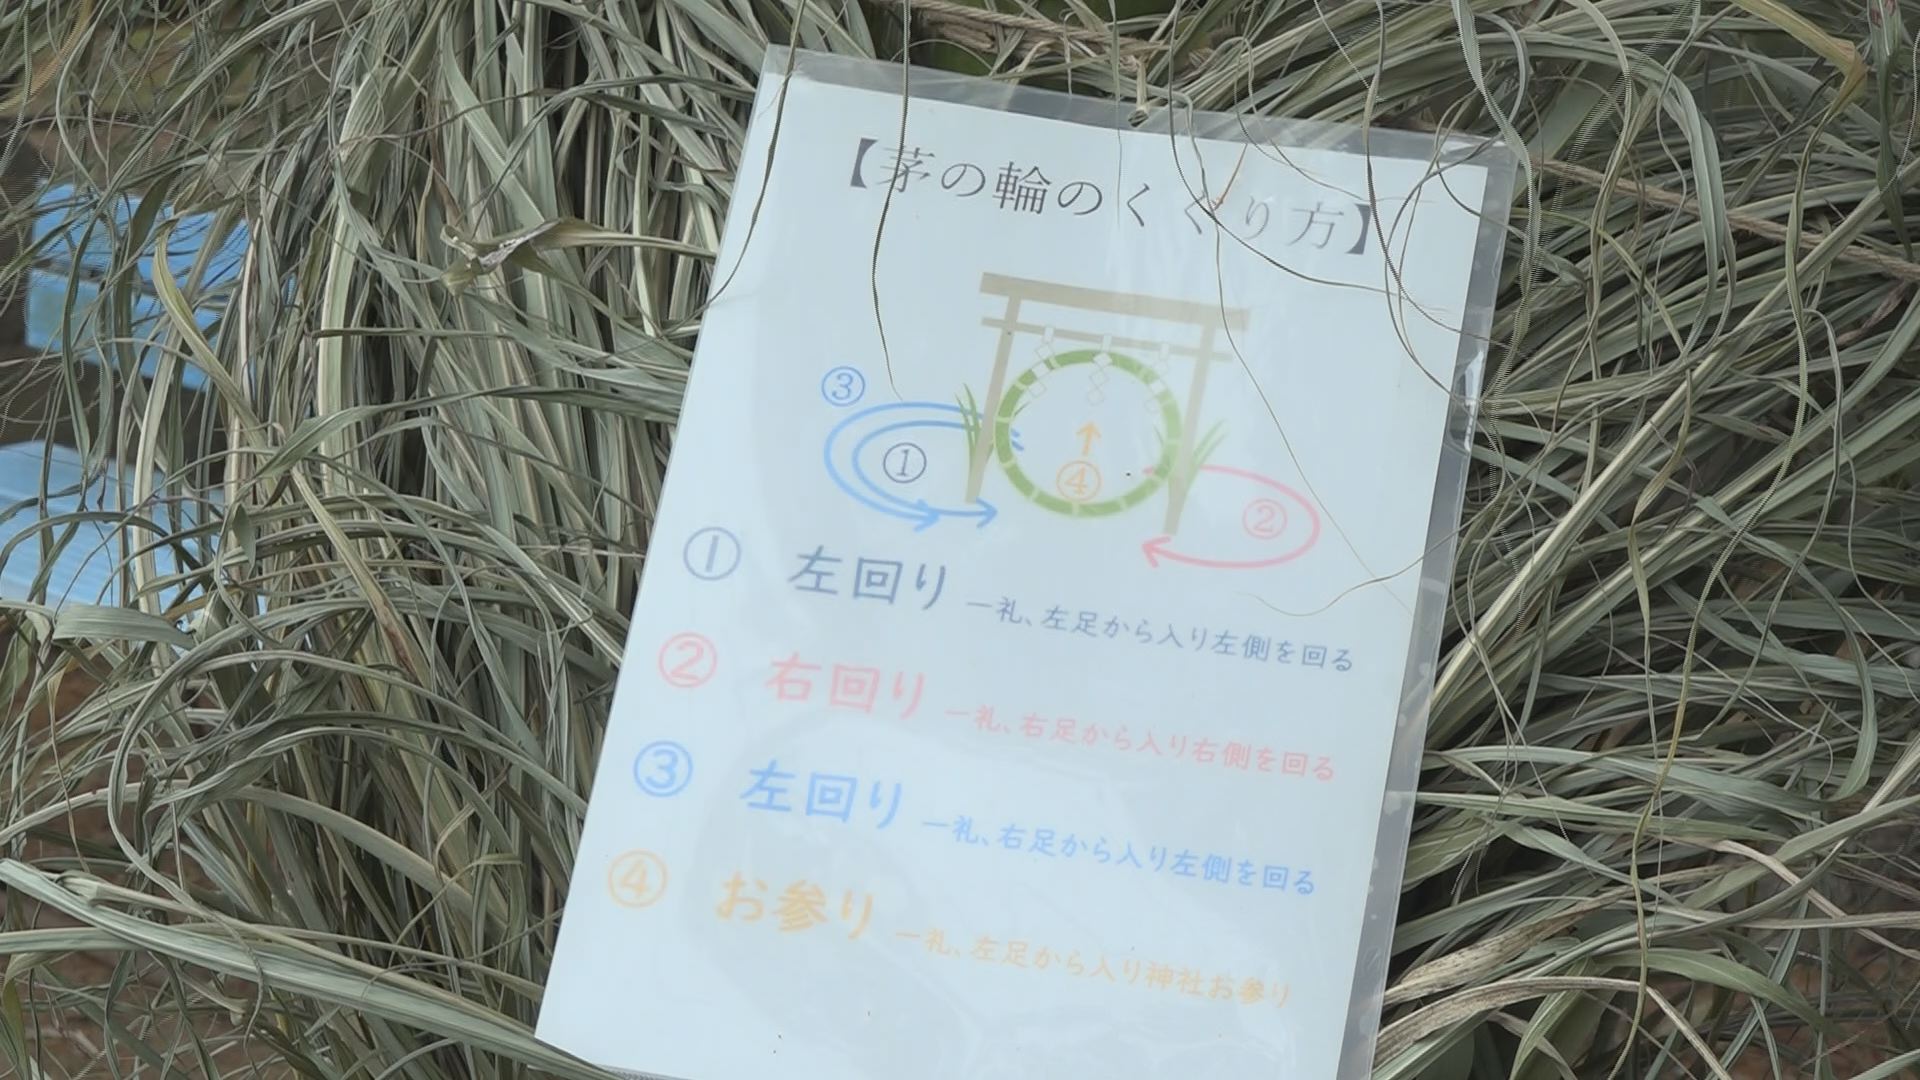 【茅の輪のくぐり方】
③
①
④
②
① 左回り 一礼、左足から入り左側を回る
② 右回り 一礼、右足から入り右側を回る
③ 左回り 一礼、右足から入り左側を回る
④ お参り 一礼、左足から入り神社お参り